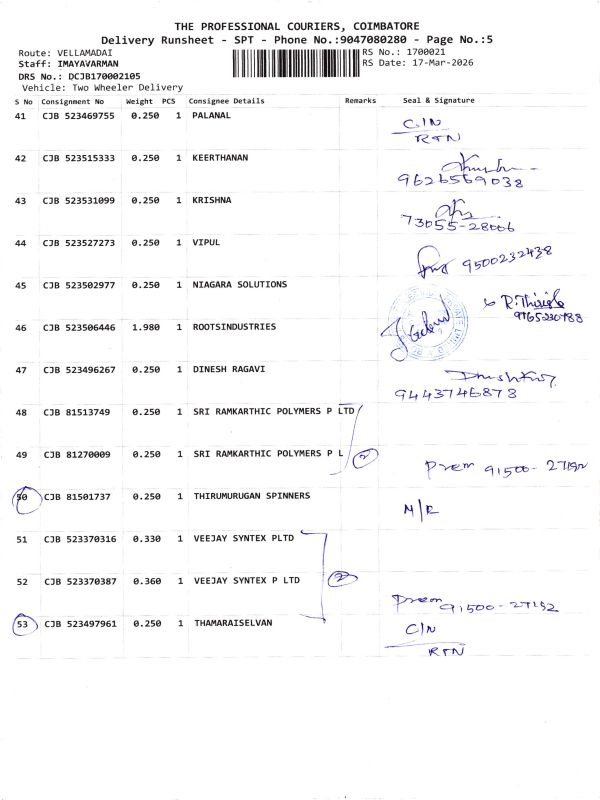 THE PROFESSIONAL COURIERS, COIMBATORE
Delivery Runsheet - SPT - Phone No.:9047080280 - Page No.:5
Route: VELLAMADAI RS No.: 1700021
Staff: IMAYAVARMAN RS Date: 17-Mar-2026
DRS No.: DCJB170002105
Vehicle: Two Wheeler Delivery
S No Consignment No Weight PCS Consignee Details Remarks Seal & Signature
41 CJB 523469755 0.250 1 PALANAL C/N
RTN
42 CJB 523515333 0.250 1 KEERTHANAN
9626569038
43 CJB 523531099 0.250 1 KRISHNA
73055-28006
44 CJB 523527273 0.250 1 VIPUL 9500232438
45 CJB 523502977 0.250 1 NIAGARA SOLUTIONS
46 CJB 523506446 1.980 1 ROOTSINDUSTRIES
47 CJB 523496267 0.250 1 DINESH RAGAVI
9443746873
48 CJB 81513749 0.250 1 SRI RAMKARTHIC POLYMERS P LTD
49 CJB 81270009 0.250 1 SRI RAMKARTHIC POLYMERS P L 2 Prem
50 CJB 81501737 0.250 1 THIRUMURUGAN SPINNERS M/R
51 CJB 523370316 0.330 1 VEEJAY SYNTEX PLTD
52 CJB 523370387 0.360 1 VEEJAY SYNTEX P LTD 2
Prem 91500-27192
53 CJB 523497961 0.250 1 THAMARAISELVAN C/N
RTN